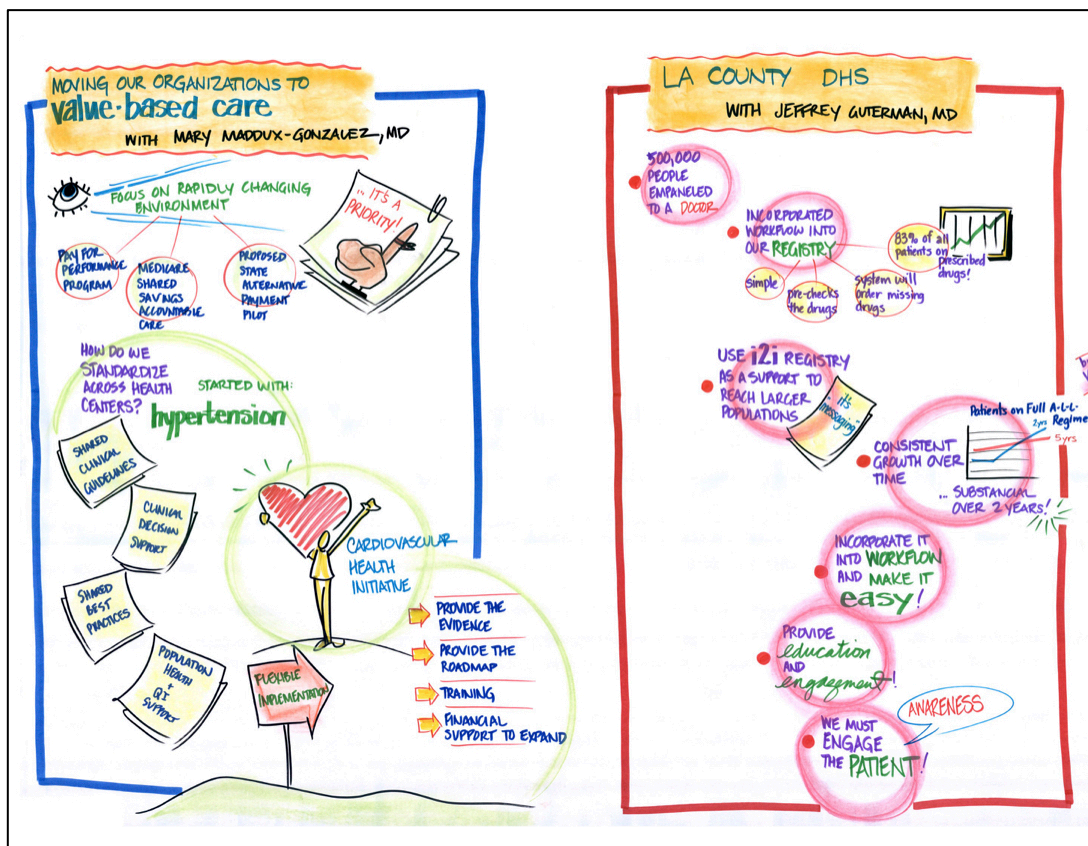 MOVING OUR ORGANIZATIONS TO
value-based care
WITH MARY MADDUX-GONZALEZ, MD
FOCUS ON RAPIDLY CHANGING
ENVIRONMENT
...IT'S A
PRIORITY!
PAY FOR
PERFORMANCE
PROGRAM
MEDICARE
SHARED
SAVINGS
ACCOUNTABLE
CARE
PROPOSED
STATE
ALTERNATIVE
PAYMENT
PILOT
HOW DO WE
STANDARDIZE
ACROSS HEALTH
CENTERS?
STARTED WITH:
hypertension
SHARED
CLINICAL
GUIDELINES
CLINICAL
DECISION
SUPPORT
SHARED
BEST
PRACTICES
POPULATION
HEALTH
+
QI
SUPPORT
CARDIOVASCULAR
HEALTH
INITIATIVE
FLEXIBLE
IMPLEMENTATION
PROVIDE THE
EVIDENCE
PROVIDE THE
ROADMAP
TRAINING
FINANCIAL
SUPPORT TO EXPAND
LA COUNTY DHS
WITH JEFFREY GUTERMAN, MD
500,000
PEOPLE
EMPANELED
TO A DOCTOR
INCORPORATED
WORKFLOW INTO
OUR REGISTRY
simple
pre-checks
the drugs
system will
order missing
drugs
83% of all
patients on
prescribed
drugs!
USE i2i REGISTRY
AS A SUPPORT TO
REACH LARGER
POPULATIONS
it's
"messaging"
CONSISTENT
GROWTH OVER
TIME
Patients on Full A-L-L
Regime
2yrs
5yrs
...SUBSTANCIAL
OVER 2 YEARS!
INCORPORATE IT
INTO WORKFLOW
AND MAKE IT
easy!
PROVIDE
education
AND
engagement!
AWARENESS
WE MUST
ENGAGE
THE PATIENT!